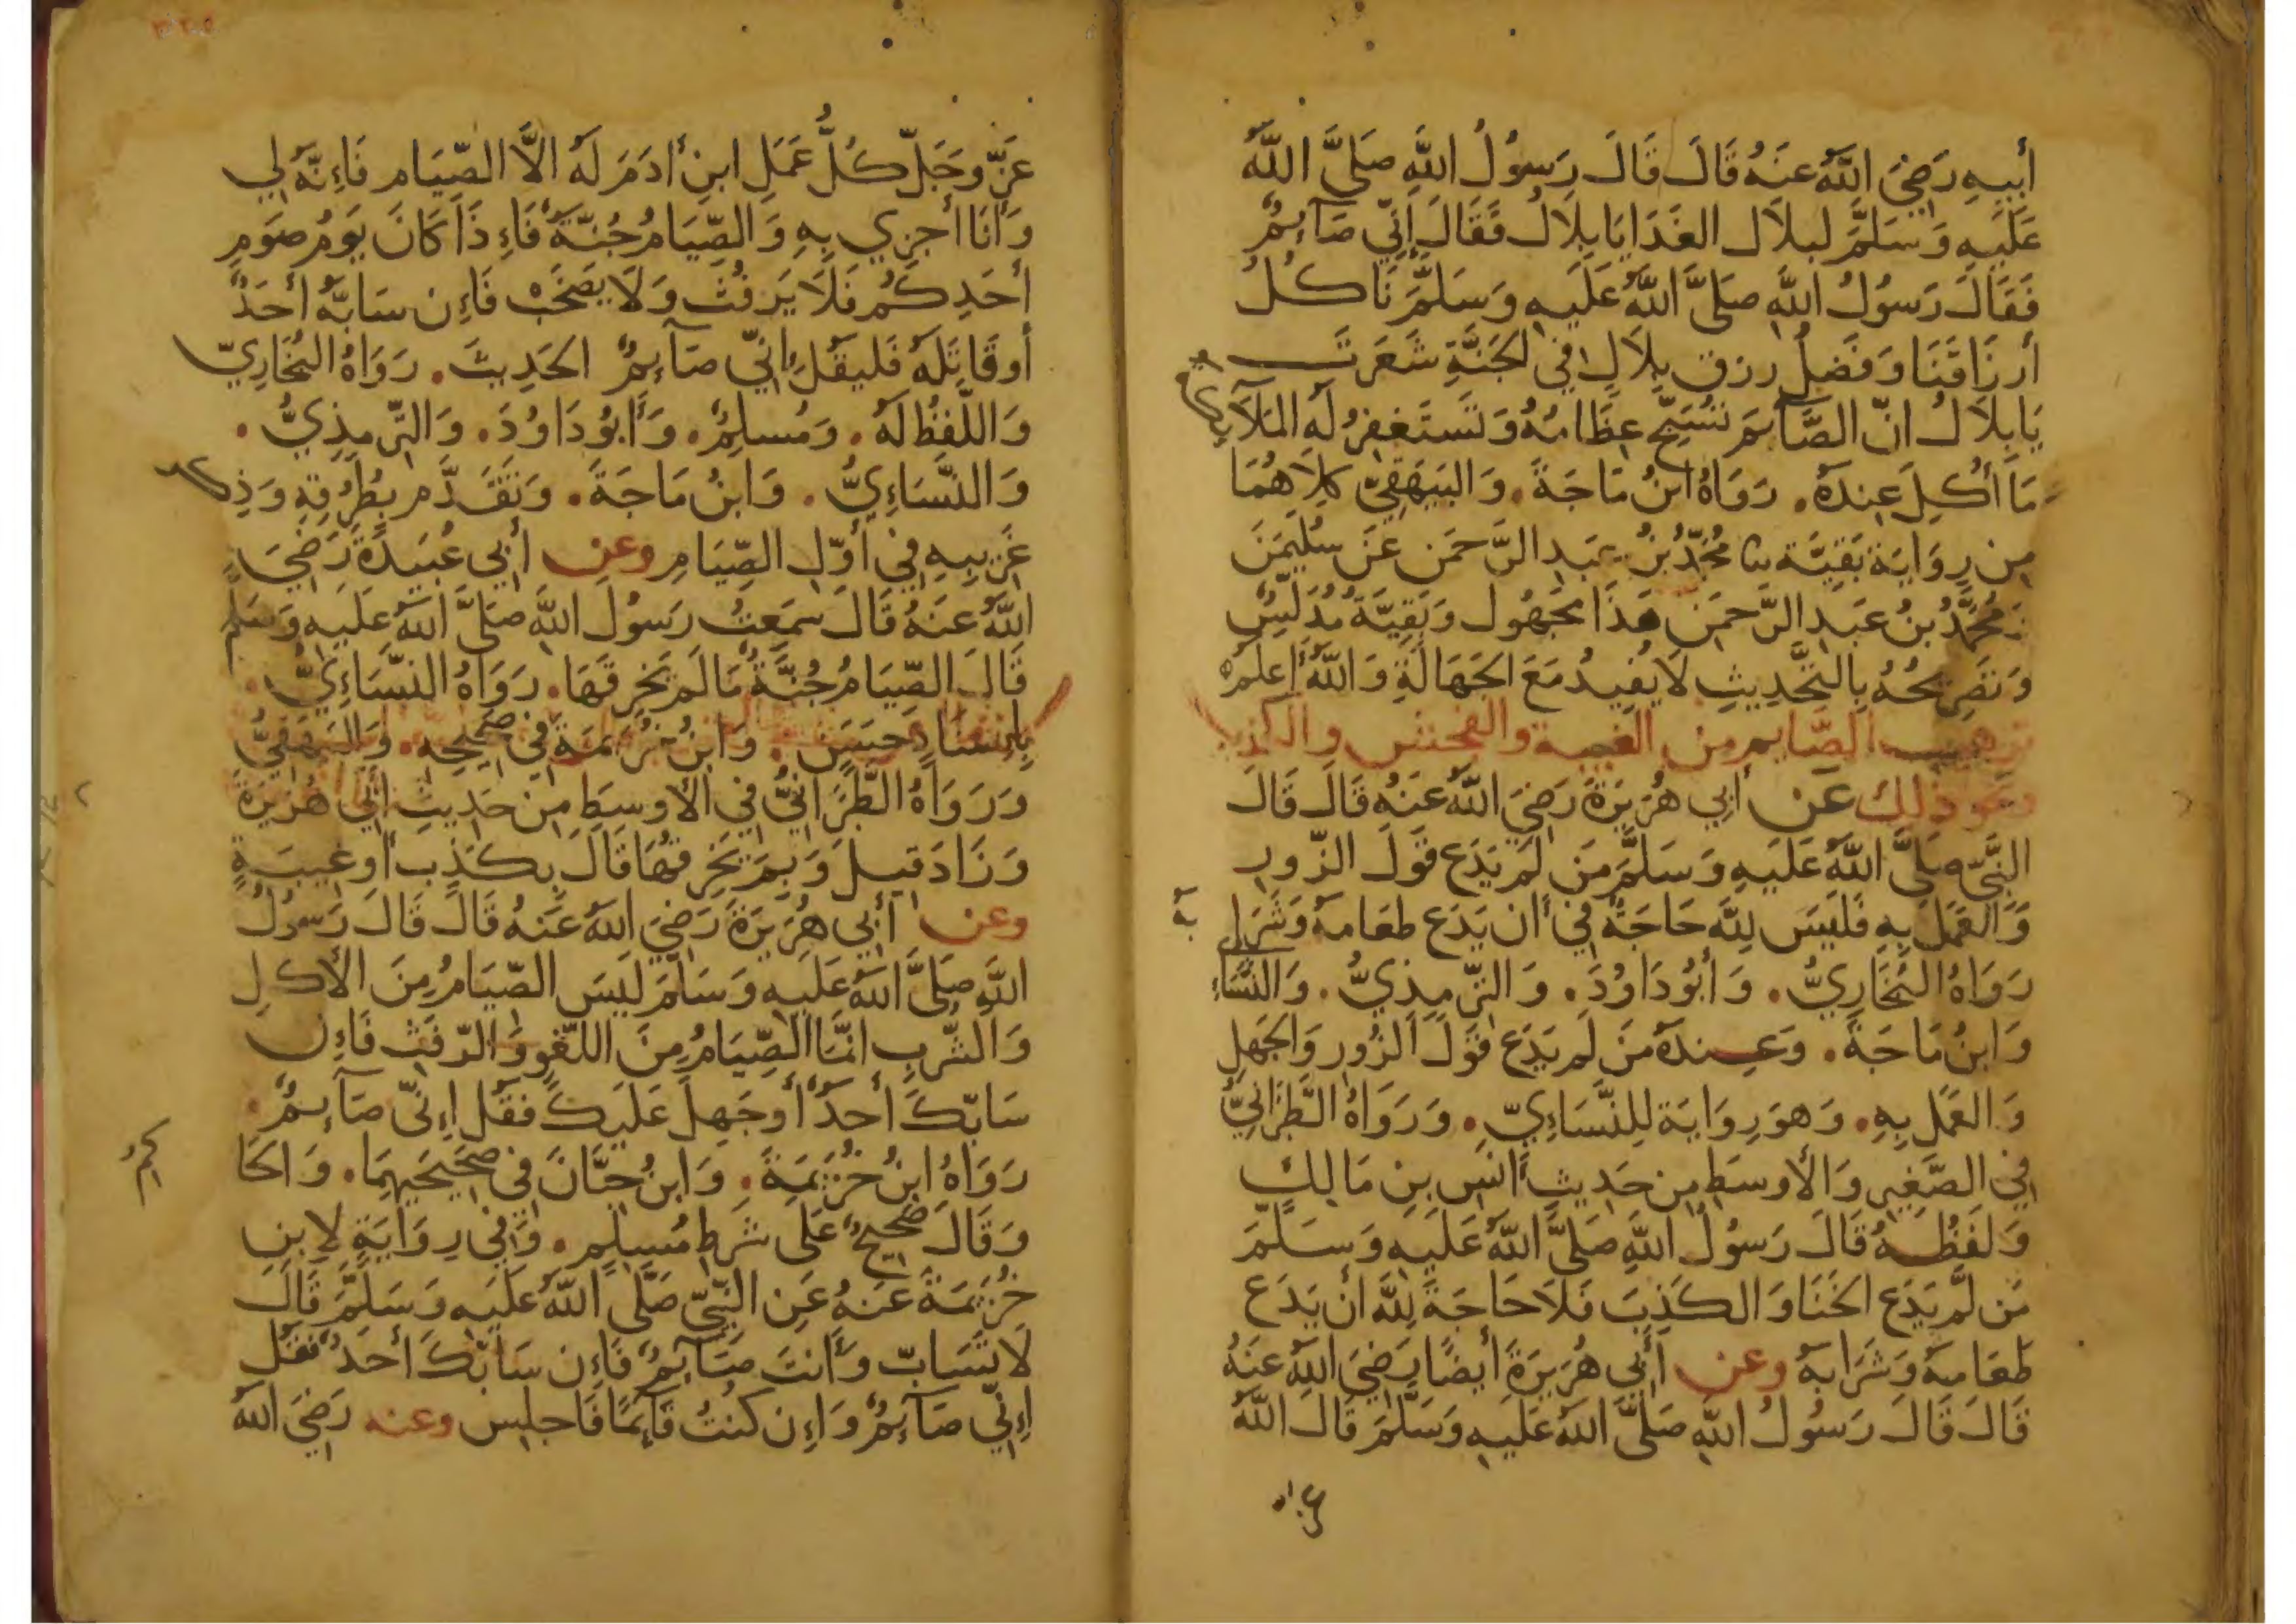 أَبِيهِ رَضِيَ اللَّهُ عَنهُ قَالَ قَالَ رَسُولُ اللَّهِ صَلَّى اللَّهُ
عَلَيهِ وَسَلَّمَ لبلاَل الغَدَا يَا بِلاَلُ فَقَالَ إِنِّي صَآئِمٌ
فَقَالَ رَسُولُ اللَّهِ صَلَّى اللَّهُ عَلَيهِ وَسَلَّمَ نَاكُلُ
أَرزَاقَنَا وَفَضلُ رزق بِلاَلٍ فِي الجَنَّةِ شَعَرتَ
يَا بِلاَلُ انّ الصَّآئِمَ تُسَبِّح عِظَامُهُ وَتَستَغفِرُ لَهُ المَلآَئِكَة
مَا أُكِلَ عِندَهُ. رَوَاهُ ابنُ مَاجَةَ. وَالبَيهَقِيّ كِلاَهُمَا
مِن رِوَايَة بَقِيَّة ثنا مُحَمَّدُ بنُ عَبدِ الرَّحمَن عَن سُلَيمَنَ
وَمُحَمَّدُ بنُ عَبدِ الرَّحمَنِ هَذَا مَجهُول وَبَقِيَّةُ مُدَلِّسٌ
وَتَصرِيحُهُ بِالتَّحدِيثِ لاَ يُفِيدُ مَعَ الجَهَالَةِ وَاللَّهُ أَعلَمُ
ترهيب الصَّايم من الغيبة والفحش والكذب
ونحو ذلك عَن أَبِي هُرَيرَةَ رَضِيَ اللَّهُ عَنهُ قَالَ قَالَ
النَّبِيّ صَلَّى اللَّهُ عَلَيهِ وَسَلَّمَ مَن لَم يَدَع قَولَ الزّورِ
وَالعَمَلَ بِهِ فَلَيسَ لِلَّهِ حَاجَةٌ فِي أَن يَدَع طعَامهُ وَشَرَابهُ
رَوَاهُ البُخَارِيُّ. وَأَبُو دَاوُدَ. وَالتِّرمِذِيُّ. وَالنَّسَاءِ
وَابنُ مَاجَةَ. وَعِندَهُ مَن لَم يَدَع قَولَ الزُورِ وَالجَهلِ
وَالعَمَل بِهِ. وَهوَ رِوَايَة لِلنَّسَاءِيّ. وَرَوَاهُ الطَّبَرَانِيُّ
فِي الصَّغِيرِ وَالأَوسَطِ مِن حَدِيثِ أَنَسِ بنِ مَالِكٍ
وَلَفظُهُ قَالَ رَسُولُ اللَّهِ صَلَّى اللَّهُ عَلَيهِ وَسَلَّمَ
مَن لَّم يَدَع الخَنَا وَالكَذِبَ فَلاَ حَاجَةَ لِلَّهِ أَن يَدَع
طَعَامهُ وَشَرَابهُ وعن أَبِي هُرَيرَةَ أَيضًا رَضِيَ اللَّهُ عَنهُ
قَالَ قَالَ رَسُولُ اللَّهِ صَلَّى اللَّهُ عَلَيهِ وَسَلَّمَ قَالَ اللَّهُ
عَزَّ وَجَلّ كُلُّ عَمَلِ ابنِ أدَمَ لَهُ الاَّ الصِّيَام فَاِءنَّهُ لِي
وَأَنَا أَجزِي بِهِ وَالصِّيَامُ جُنَّةٌ فَاِءذَا كَانَ يَومُ صَومِ
أَحَدِكُم فَلاَ يَرفُث وَلاَ يَصخَب فَاِءن سَابَّهُ أَحَدٌ
أَو قَاتَلَهُ فَليَقُل اِنِّي صَآئِمٌ الحَدِيثَ. رَوَاهُ البُخَارِيّ
وَاللَّفظُ لَهُ. وَمُسلِمٌ. وَأَبُو دَاوُدَ. وَالتِّرمِذِيُّ.
وَالنَّسَاءِيُّ. وَابنُ مَاجَةَ. وَتَقَدَّم بِطُرُقِهِ وَذِكر
غَرِيبِهِ فِي أَوَّلِ الصِّيَامِ وعن أَبِي عُبَيدَةَ رَضِيَ
اللَّهُ عَنهُ قَالَ سَمِعتُ رَسُولَ اللَّهِ صَلَّى اللَّهُ عَلَيهِ وَسَلَّم
قَالَ الصِّيَامُ جُنَّةٌ مَا لَم يَخرِقهَا. رَوَاهُ النَّسَاءِيُّ.
بِاِءسنَادٍ حَسَنٍ. وَابنُ خُزَيمَةَ فِي صَحِيحِهِ. وَالبَيهَقِيُّ
وَرَوَاهُ الطَّبَرَانِيُّ فِي الأَوسَطِ مِن حَدِيثِ أَبِي هُرَيرَةَ
وَزَادَ قِيلَ وَبِمَ يَخرِقهَا قَالَ بِكَذِب أَو غِيبَةٍ
وعن أَبِي هُرَيرَةَ رَضِيَ اللَّهُ عَنهُ قَالَ قَالَ رَسُولُ
اللَّهِ صَلَّى اللَّهُ عَلَيهِ وَسَلَّمَ لَيسَ الصِّيَامُ مِنَ الأَكلِ
وَالشُّربِ انَّمَا الصِّيَامُ مِنَ اللَّغوِ وَالرَّفَثِ فَاِءن
سَابَّكَ أَحَدٌ أَو جَهِلَ عَلَيكَ فَقُل اِءنِّي صَآئِمٌ.
رَوَاهُ ابنُ خُزَيمَةَ. وَابنُ حِبَّانَ فِي صَحِيحَيهِمَا. وَالحَا
كمُ
وَقَالَ صَحِيحٌ عَلَى شَرطِ مُسلِمٍ. وَفِي رِوَايَةٍ لاِبنِ
خُزَيمَةَ عَنهُ عَنِ النَّبِيِّ صَلَّى اللَّهُ عَلَيهِ وَسَلَّمَ قَالَ
لاَ تَسَابّ وَأَنتَ صَآئِمٌ فَاِءن سَابَّكَ أَحَدٌ فَقُل
اِءنِّي صَآئِمٌ وَاِءن كُنتُ قَآئِمًا فَاجلِس وعنه رَضِيَ اللَّهُ